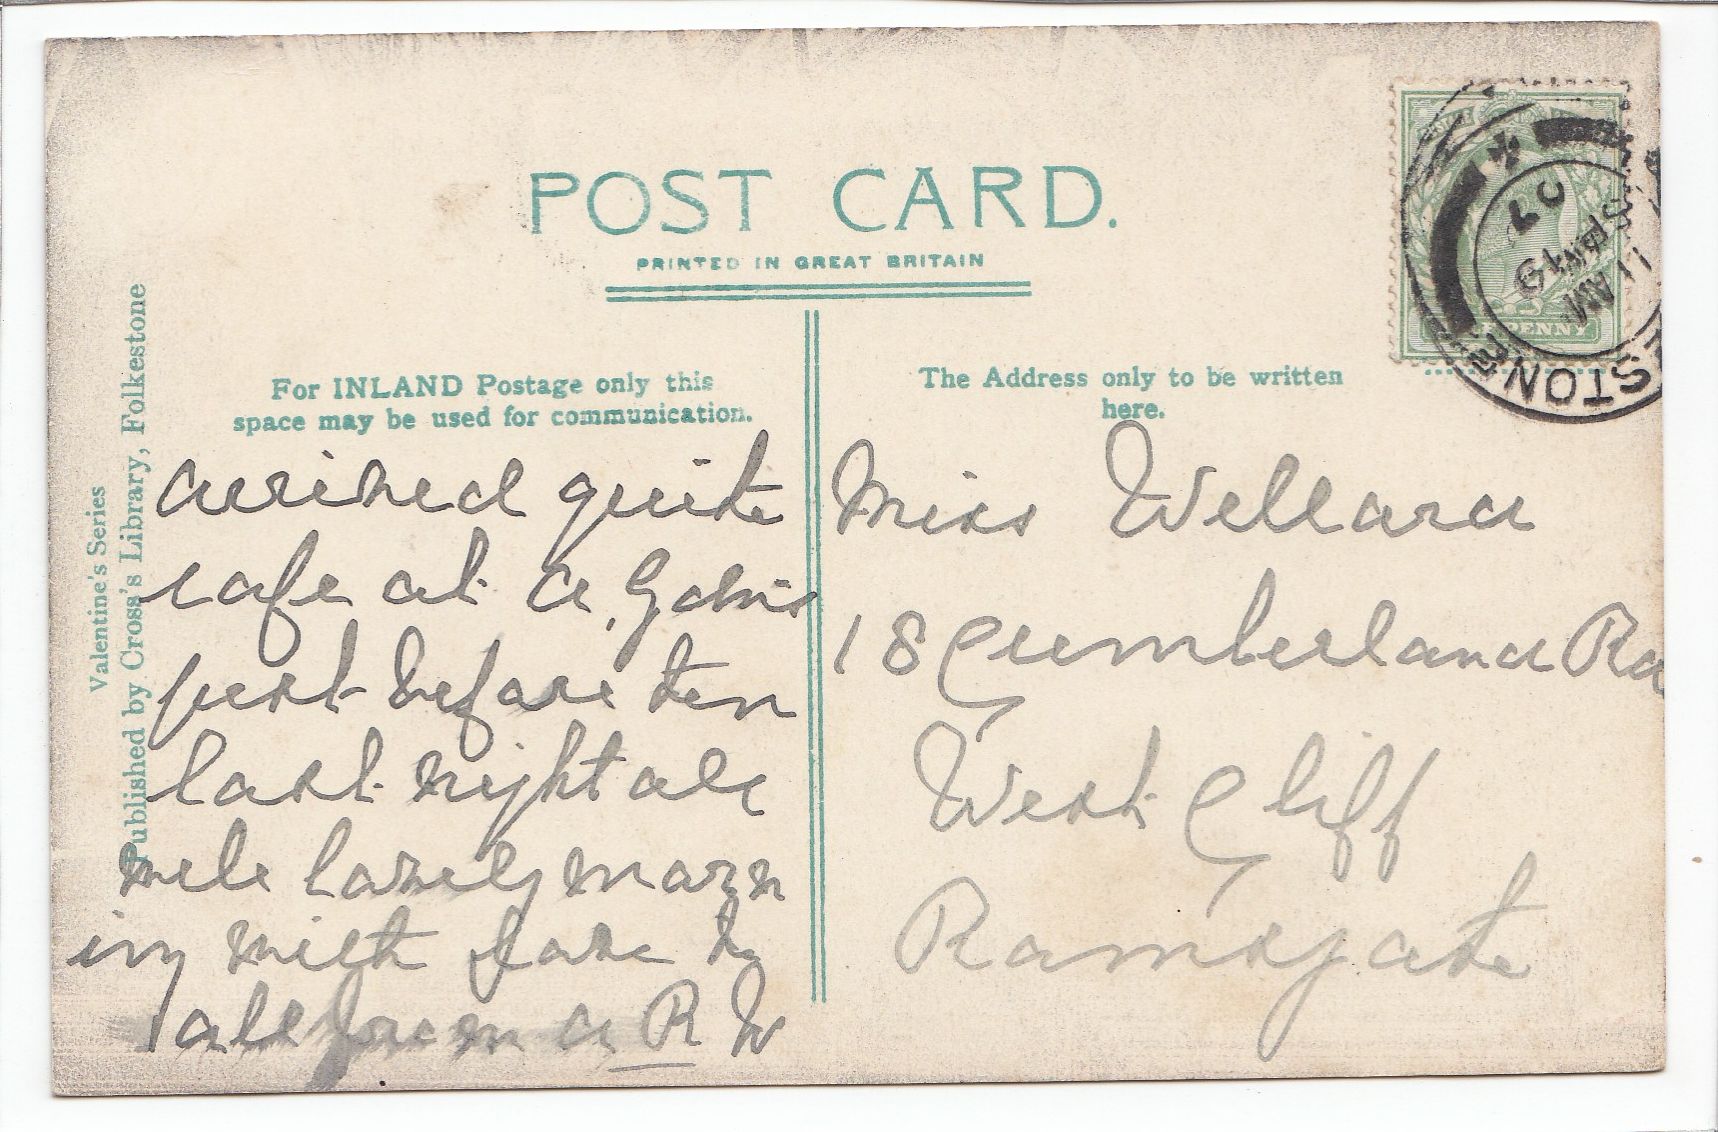 POST CARD.
PRINTED IN GREAT BRITAIN
Valentine's Series
Published by Cross's Library, Folkestone
For INLAND Postage only this
space may be used for communication.
arrived quite
safe at a
just before ten
last night all
well lovely morn
ing with love to
all from a R W
The Address only to be written
here.
Miss Wellard
18 Cumberland Rd
West Cliff
Ramsgate
HALFPENNY
STONE
11 AM
SP 19
07